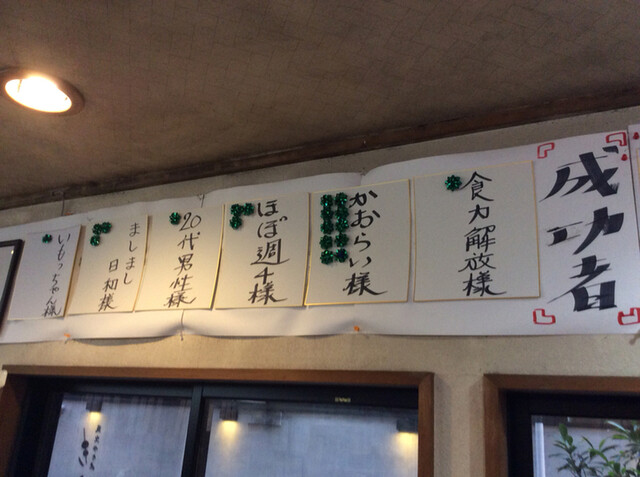 成功者
食力解放様
かおらい様
ほぼ週4様
20代男性様
ましまし
日和様
いもっちゃん様